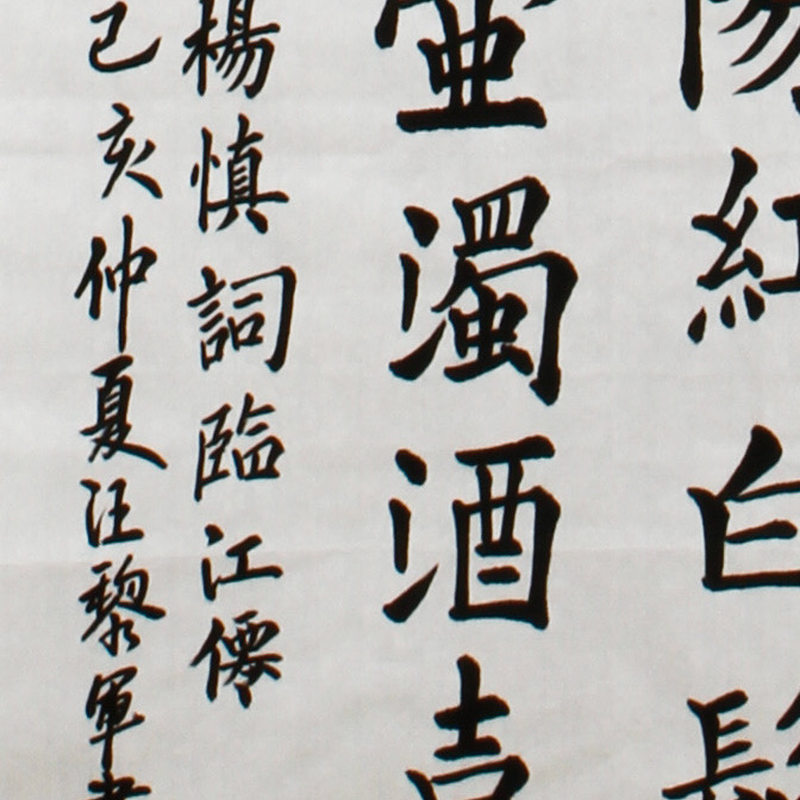 陽紅白髮
壺濁酒喜
楊慎詞臨江僊
己亥仲夏汪黎軍書